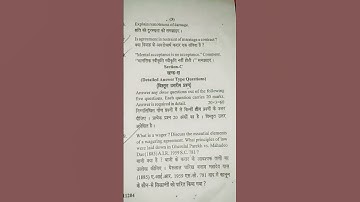 (3)
Explain remoteness of damage.
क्षति की दूरस्थता को समझाइए।
Is agreement in restraint of marriage a contract ?
क्या विवाह के अवरोधार्थ करार एक संविदा है ?
"Mental acceptance is no acceptance." Comment.
"मानसिक स्वीकृति स्वीकृति नहीं होती" । समझाइए।
Section-C
खण्ड-स
(Detailed Answer Type Questions)
(विस्तृत उत्तरीय प्रश्न)
Answer any three questions out of the following
five questions. Each question carries 20 marks.
Answer is required in detail. 20×3=60
निम्नलिखित पाँच प्रश्नों में से किन्हीं तीन प्रश्नों के उत्तर
दीजिए । प्रत्येक प्रश्न 20 अंकों का है । विस्तृत उत्तर
अपेक्षित है ।
What is a wager ? Discuss the essential elements
of a wagering agreement. What principles of law
were laid down in Gherulal Parekh vs. Mahadeo
Das A.I.R. 1959 S.C. 781 ?
1959 एस.सी. 781 वाद में कानून
के कौन-से सिद्धान्तों को पारित किया गया ?